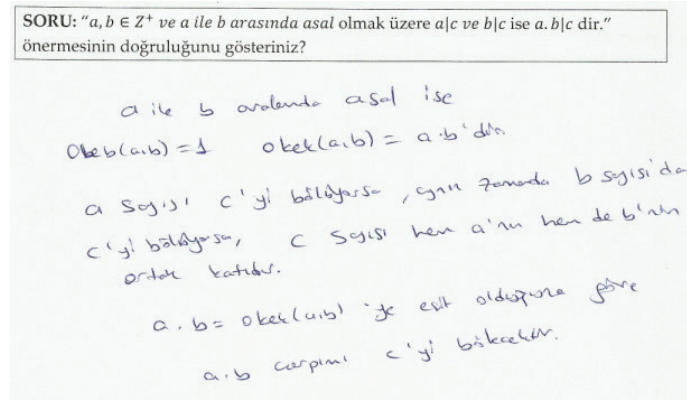 SORU: “a, b ∈ Z⁺ ve a ile b arasında asal olmak üzere a|c ve b|c ise a.b|c dir.”
önermesinin doğruluğunu gösteriniz?
a ile b aralarında asal ise
Obeb(a,b) = 1 okek(a,b) = a·b'dir.
a sayısı c'yi bölüyorsa, aynı zamanda b sayısı da
c'yi bölüyorsa, c sayısı hem a'nın hem de b'nin
ortak katıdır.
a.b = okek(a,b) 'ye eşit olduğuna göre
a.b çarpımı c'yi bölecektir.